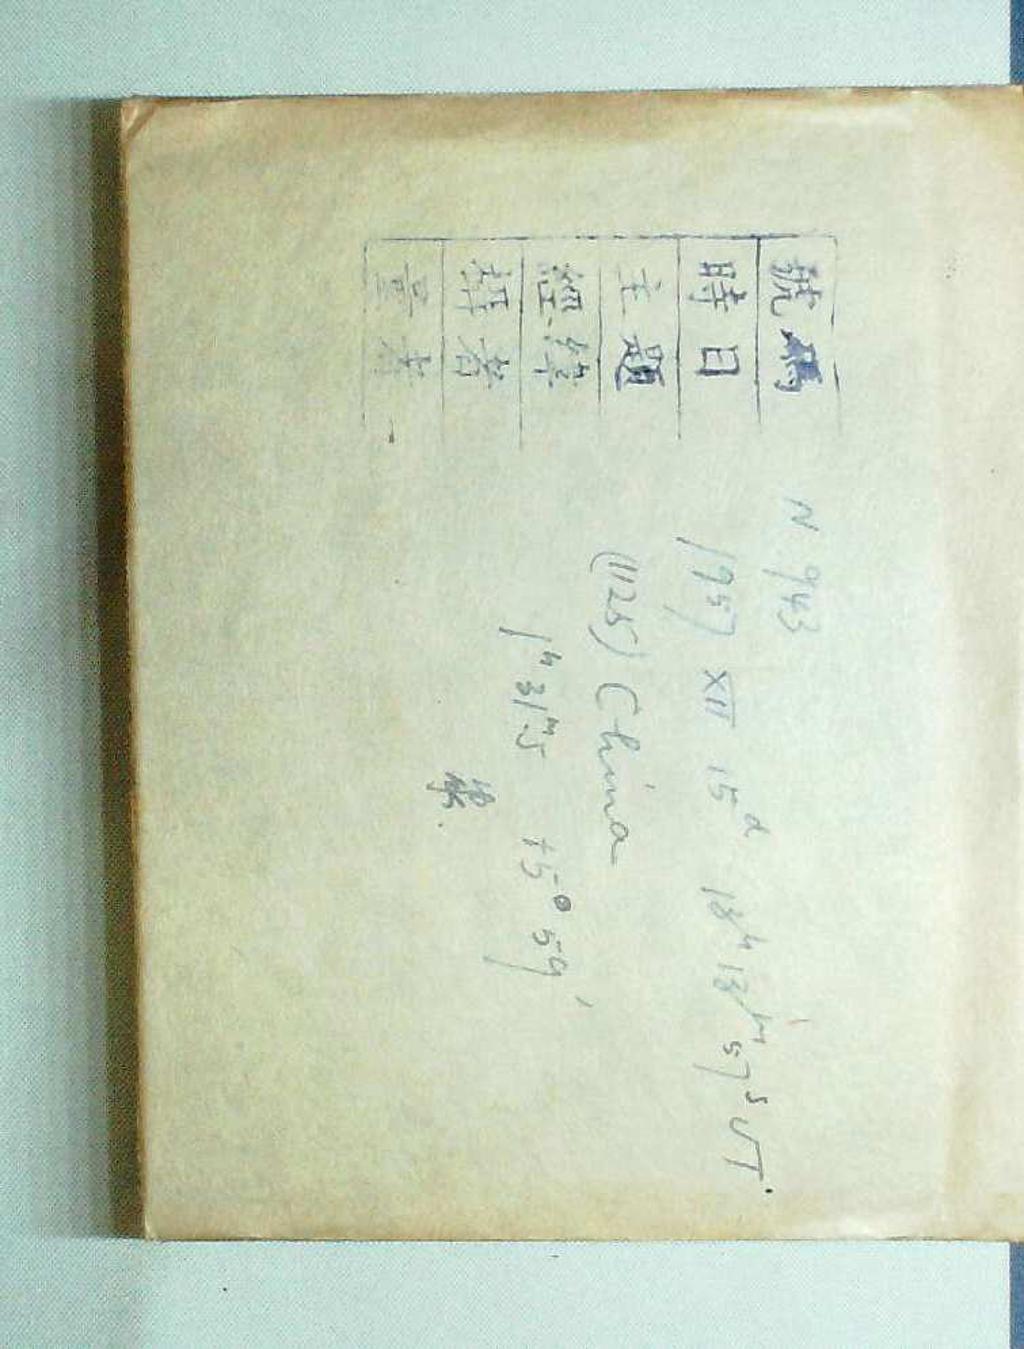 號碼 N 943
時日 1957 XII 15ᵈ 13ʰ 13ᵐ 57ˢ UT.
主題 (1125) China
經緯 1ʰ 31ᵐ.5 +5° 59′
攝者
量者